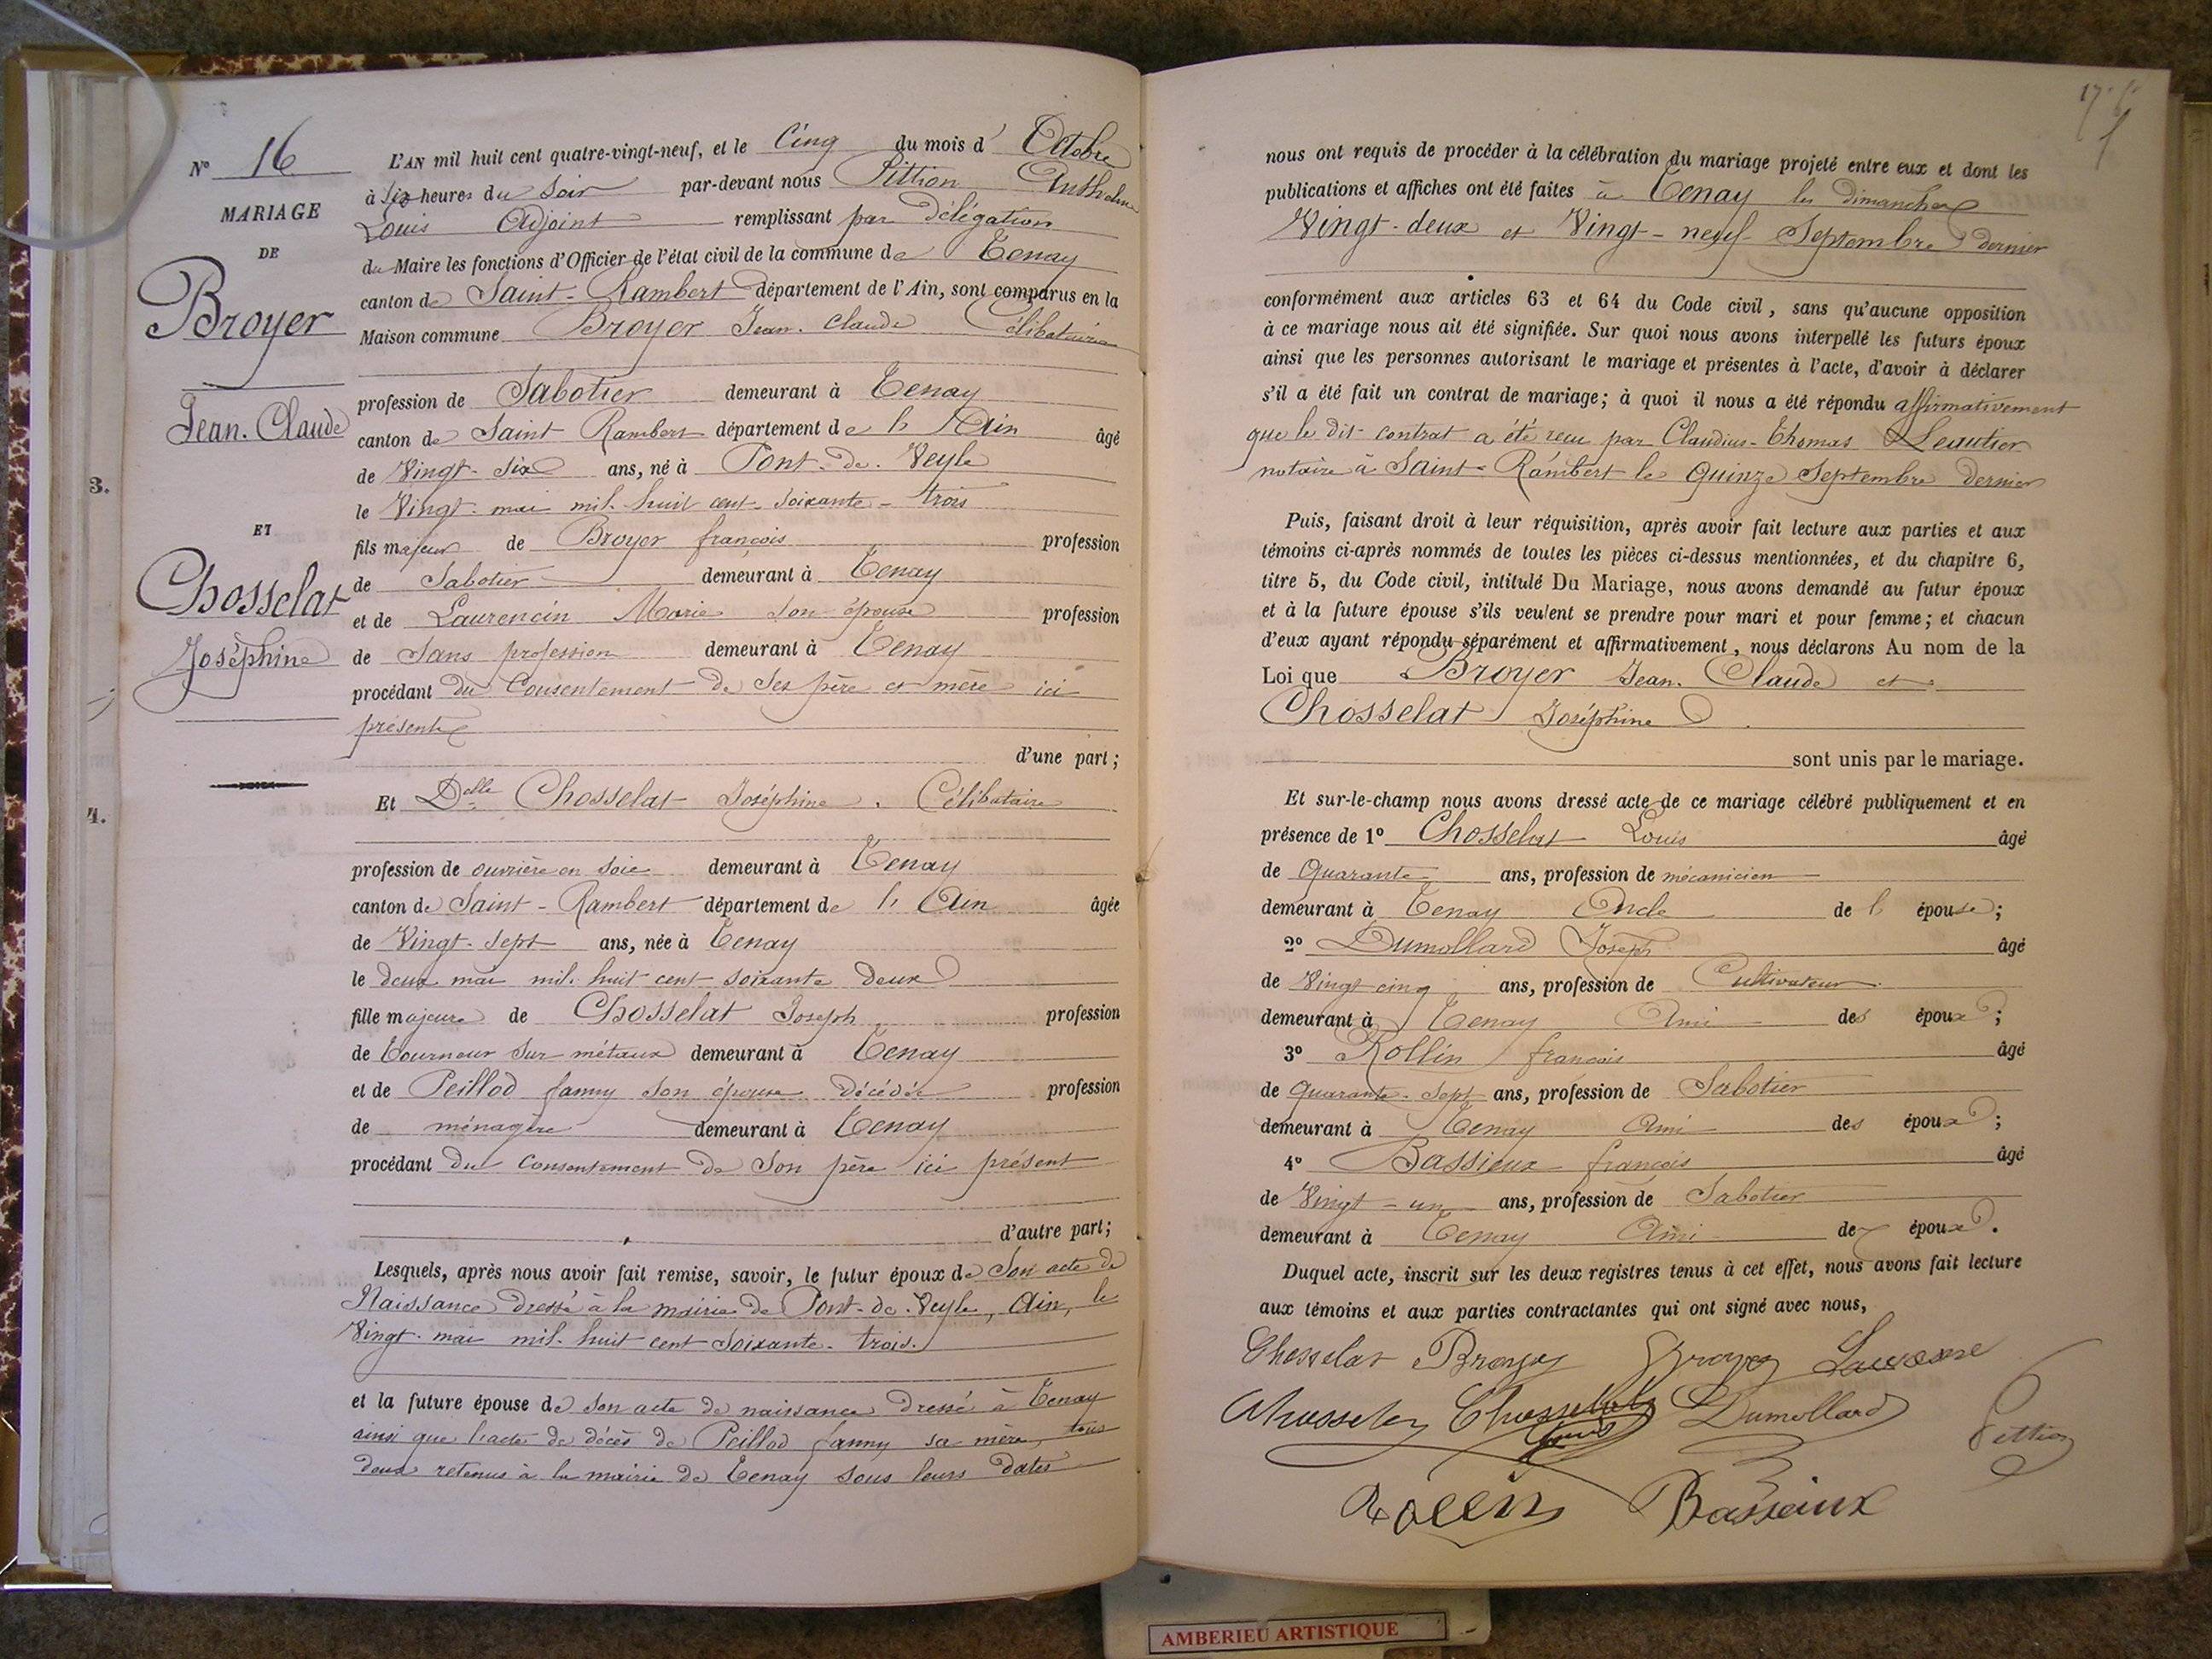 N° 16
MARIAGE
DE
Broyer
Jean-Claude
ET
Chosselat
Joséphine
3.
4.
L'AN mil huit cent quatre-vingt-neuf, et le Cinq du mois d' Octobre
à Six heures du Soir par-devant nous Pittion Anthelme
Louis Adjoint remplissant par Délégation
du Maire les fonctions d'Officier de l'état civil de la commune de Tenay
canton de Saint-Rambert département de l'Ain, sont comparus en la
Maison commune Broyer Jean-Claude Célibataire
profession de Sabotier demeurant à Tenay
canton de Saint Rambert département de l'Ain âgé
de Vingt-six ans, né à Pont-de-Veyle
le Vingt mai mil-huit cent-soixante-trois
fils majeur de Broyer françois profession
de Sabotier demeurant à Tenay
et de Laurencin Marie son épouse profession
de Sans profession demeurant à Tenay
procédant du Consentement de Ses père et mère ici
présents
d'une part;
Et Delle Chosselat Joséphine. Célibataire
profession de ouvrière en soie demeurant à Tenay
canton de Saint-Rambert département de l'Ain âgée
de Vingt-sept ans, née à Tenay
le deux mai mil-huit cent soixante deux
fille majeure de Chosselat Joseph profession
de tourneur sur métaux demeurant à Tenay
et de Peillod fanny son épouse décédée profession
de ménagère demeurant à Tenay
procédant du consentement de son père ici présent
d'autre part;
Lesquels, après nous avoir fait remise, savoir, le futur époux de Son acte de
Naissance dressé à la mairie de Pont-de-Veyle, Ain, le
Vingt-mai mil-huit cent Soixante-trois.
et la future épouse de son acte de naissance dressé à Tenay
ainsi que l'acte de décès de Peillod fanny sa mère, tous
deux retenus à la mairie de Tenay sous leurs dates
nous ont requis de procéder à la célébration du mariage projeté entre eux et dont les
publications et affiches ont été faites à Tenay les dimanches
Vingt-deux et Vingt-neuf Septembre dernier
conformément aux articles 63 et 64 du Code civil, sans qu'aucune opposition
à ce mariage nous ait été signifiée. Sur quoi nous avons interpellé les futurs époux
ainsi que les personnes autorisant le mariage et présentes à l'acte, d'avoir à déclarer
s'il a été fait un contrat de mariage; à quoi il nous a été répondu affirmativement
que le dit contrat a été reçu par Claudius-Thomas Leautier
notaire à Saint-Rambert le Quinze Septembre dernier
Puis, faisant droit à leur réquisition, après avoir fait lecture aux parties et aux
témoins ci-après nommés de toutes les pièces ci-dessus mentionnées, et du chapitre 6,
titre 5, du Code civil, intitulé Du Mariage, nous avons demandé au futur époux
et à la future épouse s'ils veulent se prendre pour mari et pour femme; et chacun
d'eux ayant répondu séparément et affirmativement, nous déclarons Au nom de la
Loi que Broyer Jean-Claude et
Chosselat Joséphine
sont unis par le mariage.
Et sur-le-champ nous avons dressé acte de ce mariage célébré publiquement et en
présence de 1° Chosselat Louis âgé
de Quarante ans, profession de mécanicien
demeurant à Tenay Oncle de l'épouse;
2° Dumollard Joseph âgé
de Vingt cinq ans, profession de Cultivateur
demeurant à Tenay Ami des époux;
3° Rollin françois âgé
de quarante-sept ans, profession de Sabotier
demeurant à Tenay Ami des époux;
4° Bassieux françois âgé
de Vingt-un ans, profession de Sabotier
demeurant à Tenay Ami des époux.
Duquel acte, inscrit sur les deux registres tenus à cet effet, nous avons fait lecture
aux témoins et aux parties contractantes qui ont signé avec nous,
Chosselat Broyer Broyer
Chosselat Dumollard Pittion
Louis
Rollin Bassieux
AMBERIEU ARTISTIQUE